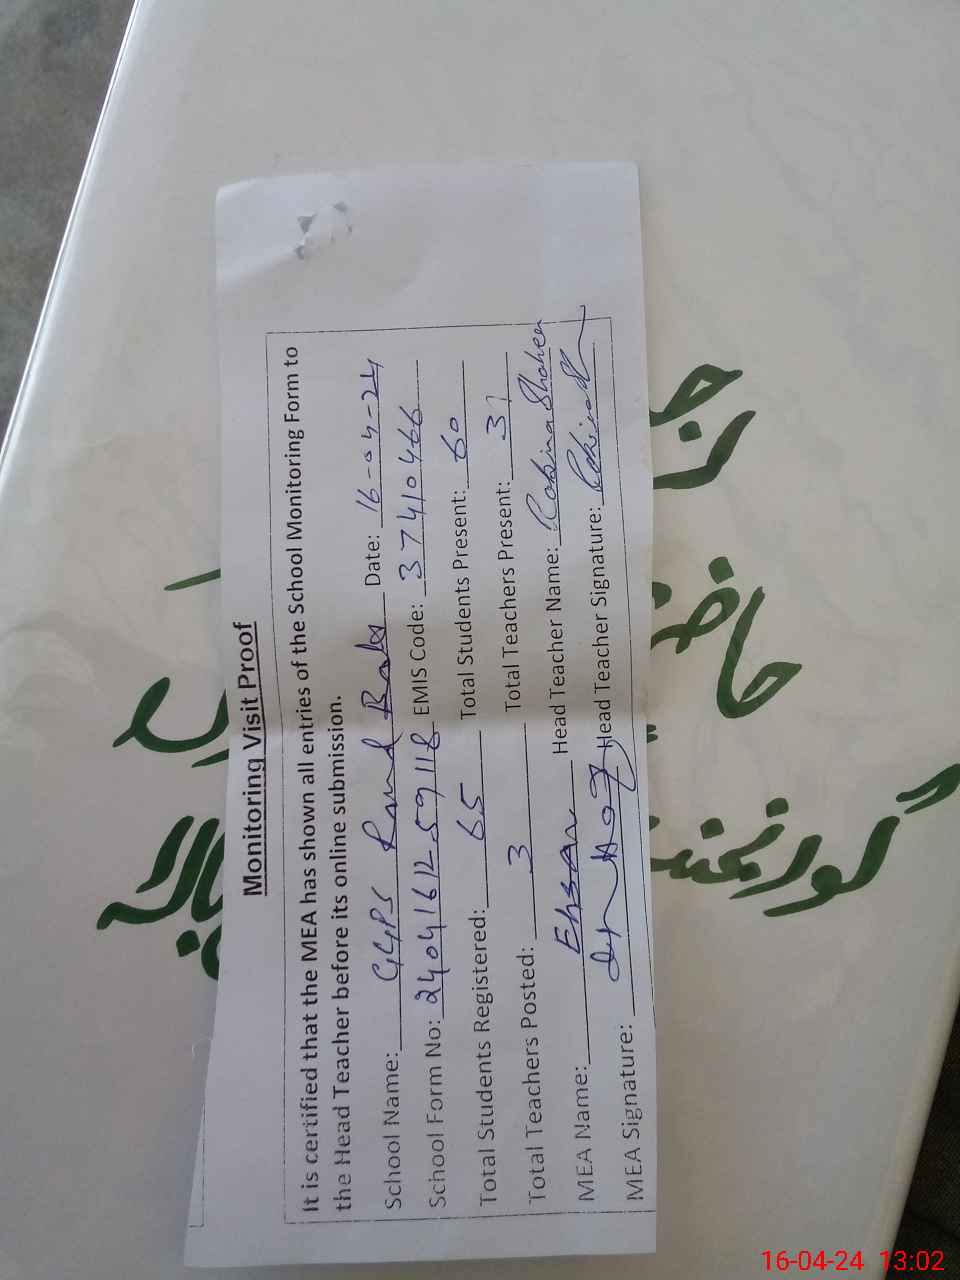 Monitoring Visit Proof
It is certified that the MEA has shown all entries of the School Monitoring Form to
the Head Teacher before its online submission.
School Name: GGPS Rand Bala Date: 16-04-24
School Form No: 2404161259118 EMIS Code: 37410466
Total Students Registered: 65 Total Students Present: 60
Total Teachers Posted: 3 Total Teachers Present: 3
MEA Name: Ehsan Head Teacher Name: Robina Shaheen
MEA Signature: Head Teacher Signature:
گورنمنٹ
16-04-24 13:02